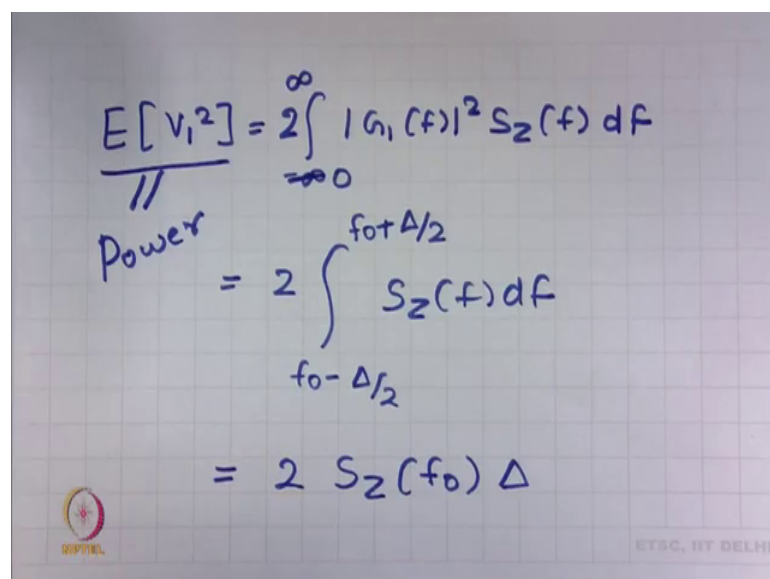 E[V₁²] = 2∫₀^∞ |G₁(f)|² S_Z(f) df
Power
= 2 ∫_{f₀-Δ/2}^{f₀+Δ/2} S_Z(f) df
= 2 S_Z(f₀) Δ
NPTEL
ETSC, IIT DELHI